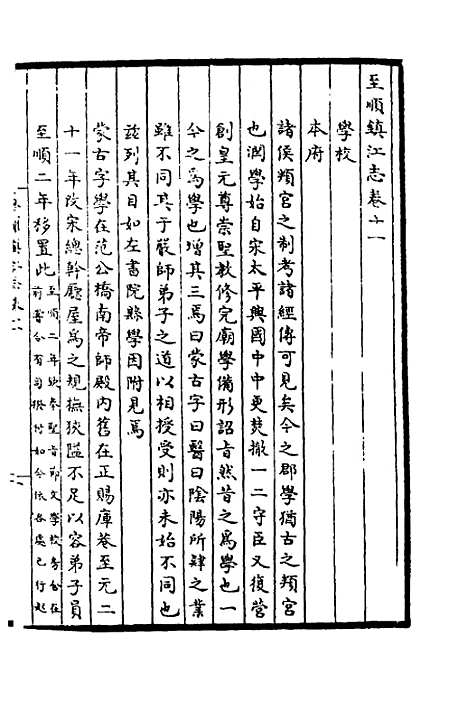 至順鎮江志卷十一
學校
本府
諸侯頖宮之制考諸經傳可見矣今之郡學猶古之頖宮
也潤學始自宋太平興國中中更焚撤一二守臣又復營
創皇元尊崇聖教修完廟學備形詔旨然昔之為學也一
今之為學也增其三焉曰蒙古字曰醫曰陰陽所肄之業
雖不同其于嚴師弟子之道以相授受則亦未始不同也
茲列其目如左書院縣學因附見焉
蒙古字學在范公橋南帝師殿內舊在正賜庫巷至元二
十一年改宋總幹廳屋為之規撫狹隘不足以容弟子員
至順二年移置此至順二年欽奉聖旨節文學校房舍在
前當令有司撥付如今依各處已行起